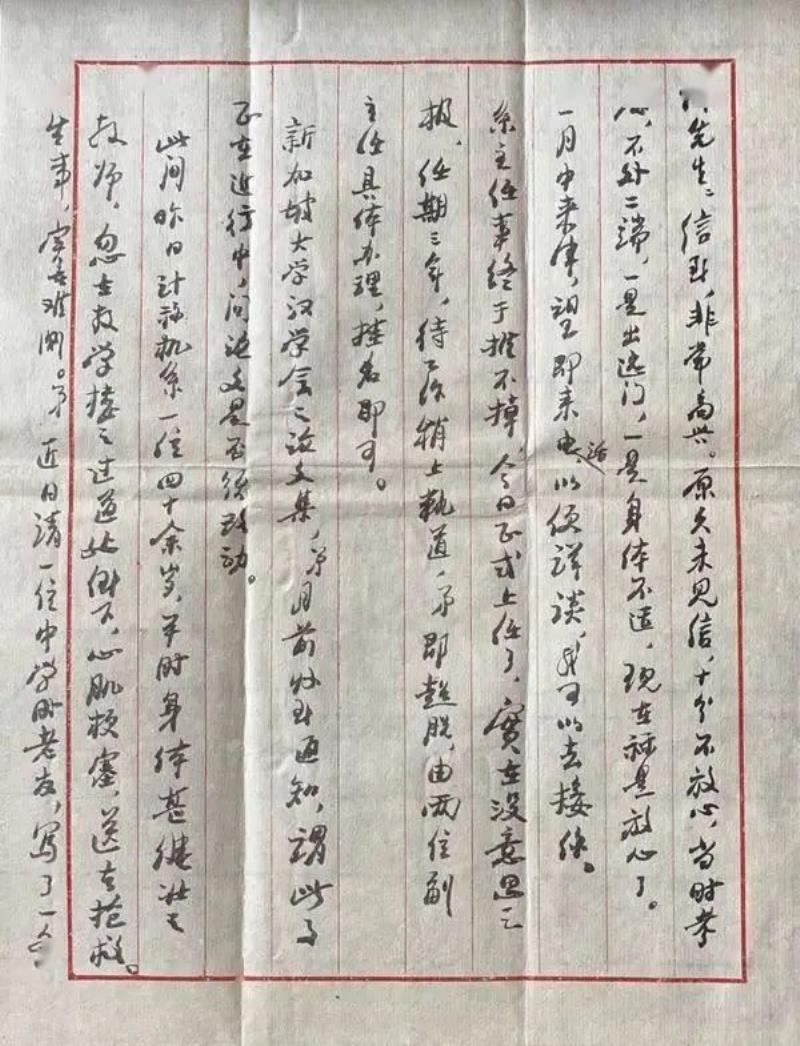 先生：信到，非常高兴。原久未见信，十分不放心，当时考
心，不外二端，一是出远门，一是身体不适，现在算是放心了。
一月中来津，望即来电话，以便详谈，我可以去接你。
系主任事终于推不掉，今日正式上任了，实在没意思之
极，任期三年，待工作稍上轨道，弟即超脱，由两位副
主任具体办理，挂名即可。
新加坡大学汉学会之论文集，弟月前收到通知，谓此事
正在进行中，问论文是否须改动。
此间昨日计算机系一位四十余岁，平时身体甚健壮之
教师，忽在教学楼之过道处倒下，心肌梗塞，送去抢救。
生事，实在难测。弟近日请一位中学时老友，写了一个